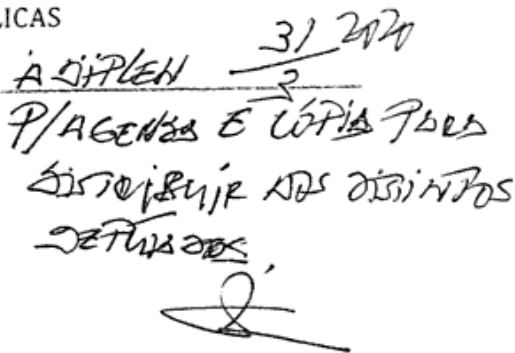 LICAS
À DIPLEN 31/3 2020
P/AGENDA E CÓPIA PARA
DISTRIBUIR AOS DISTINTOS
DEPUTADOS